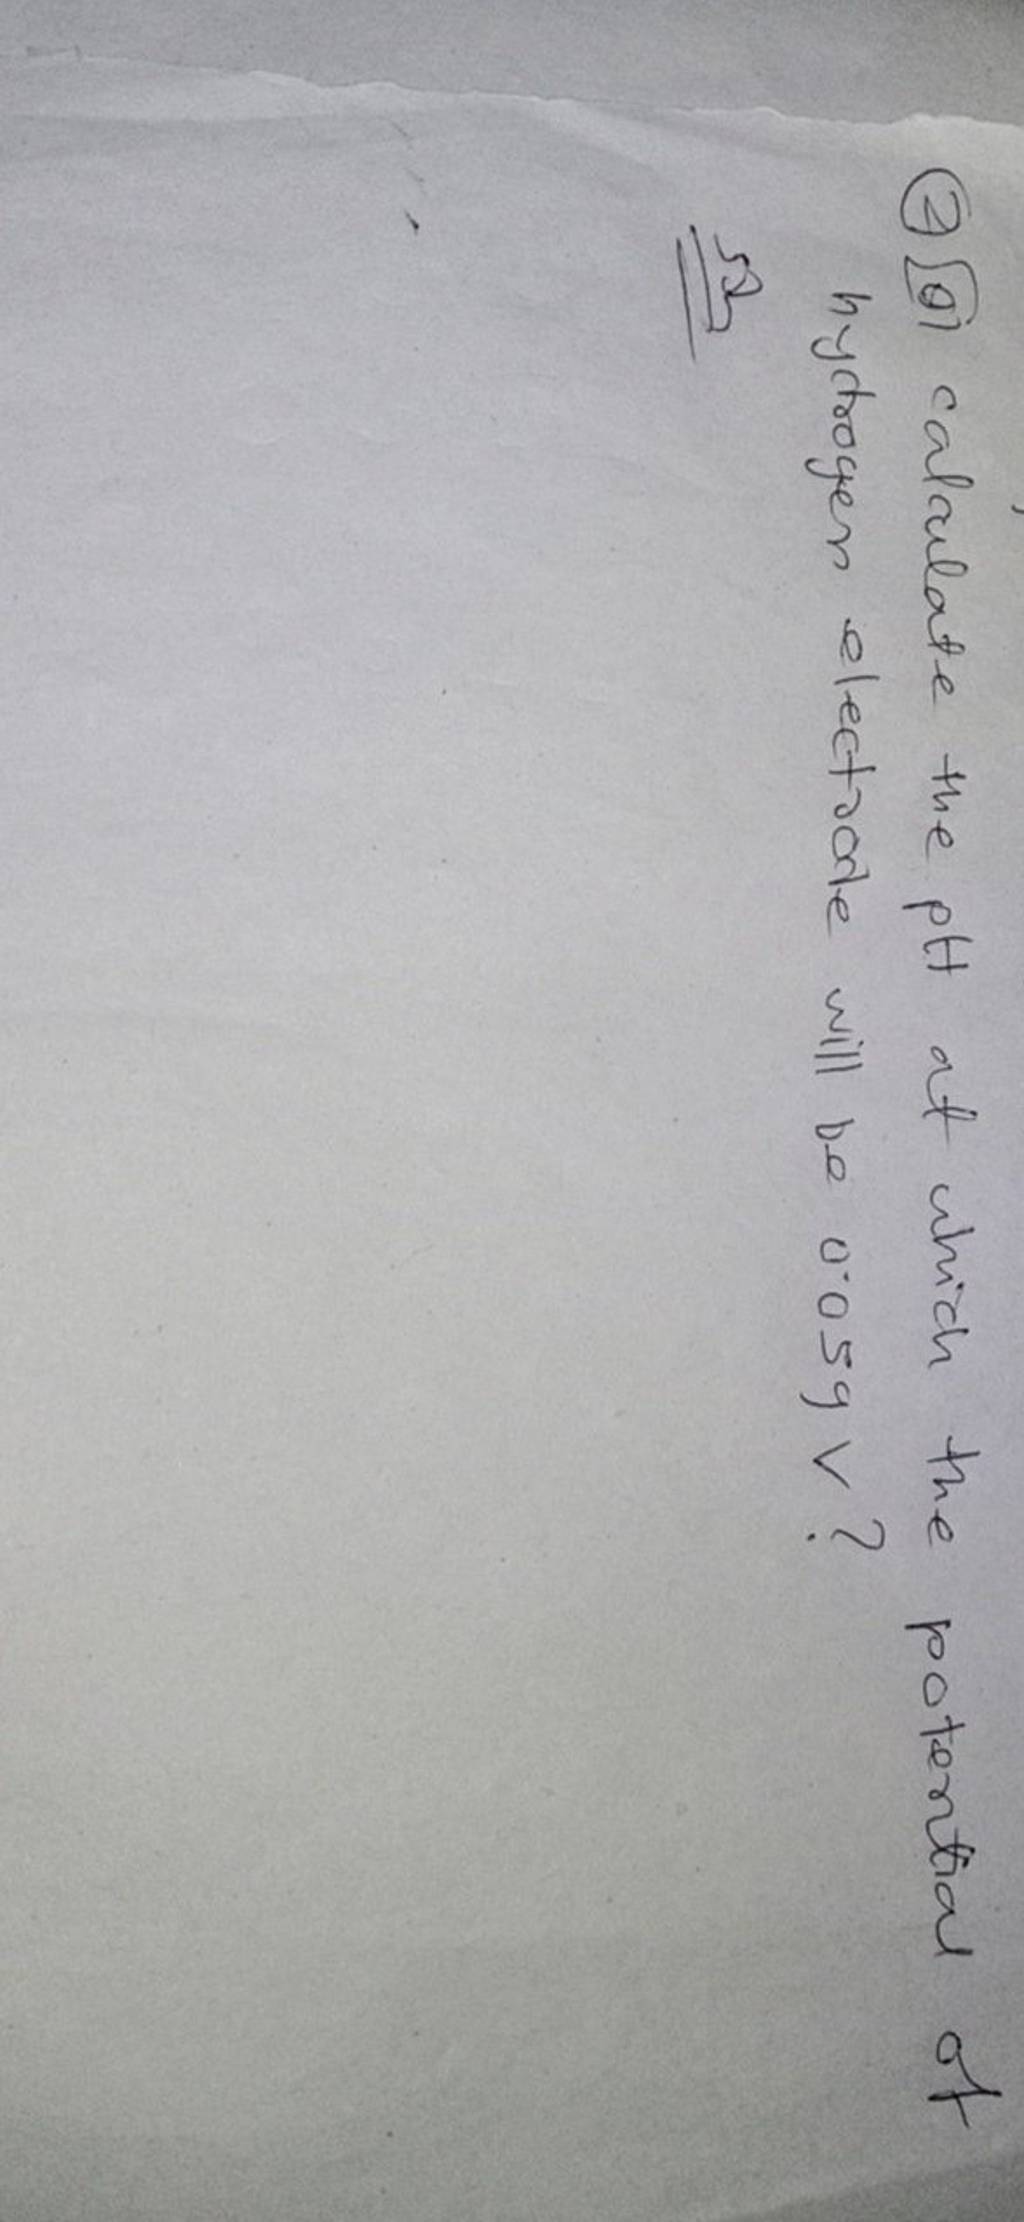 ② a) calculate the pH at which the potential of
hydrogen electrode will be 0.059 V?
Sol